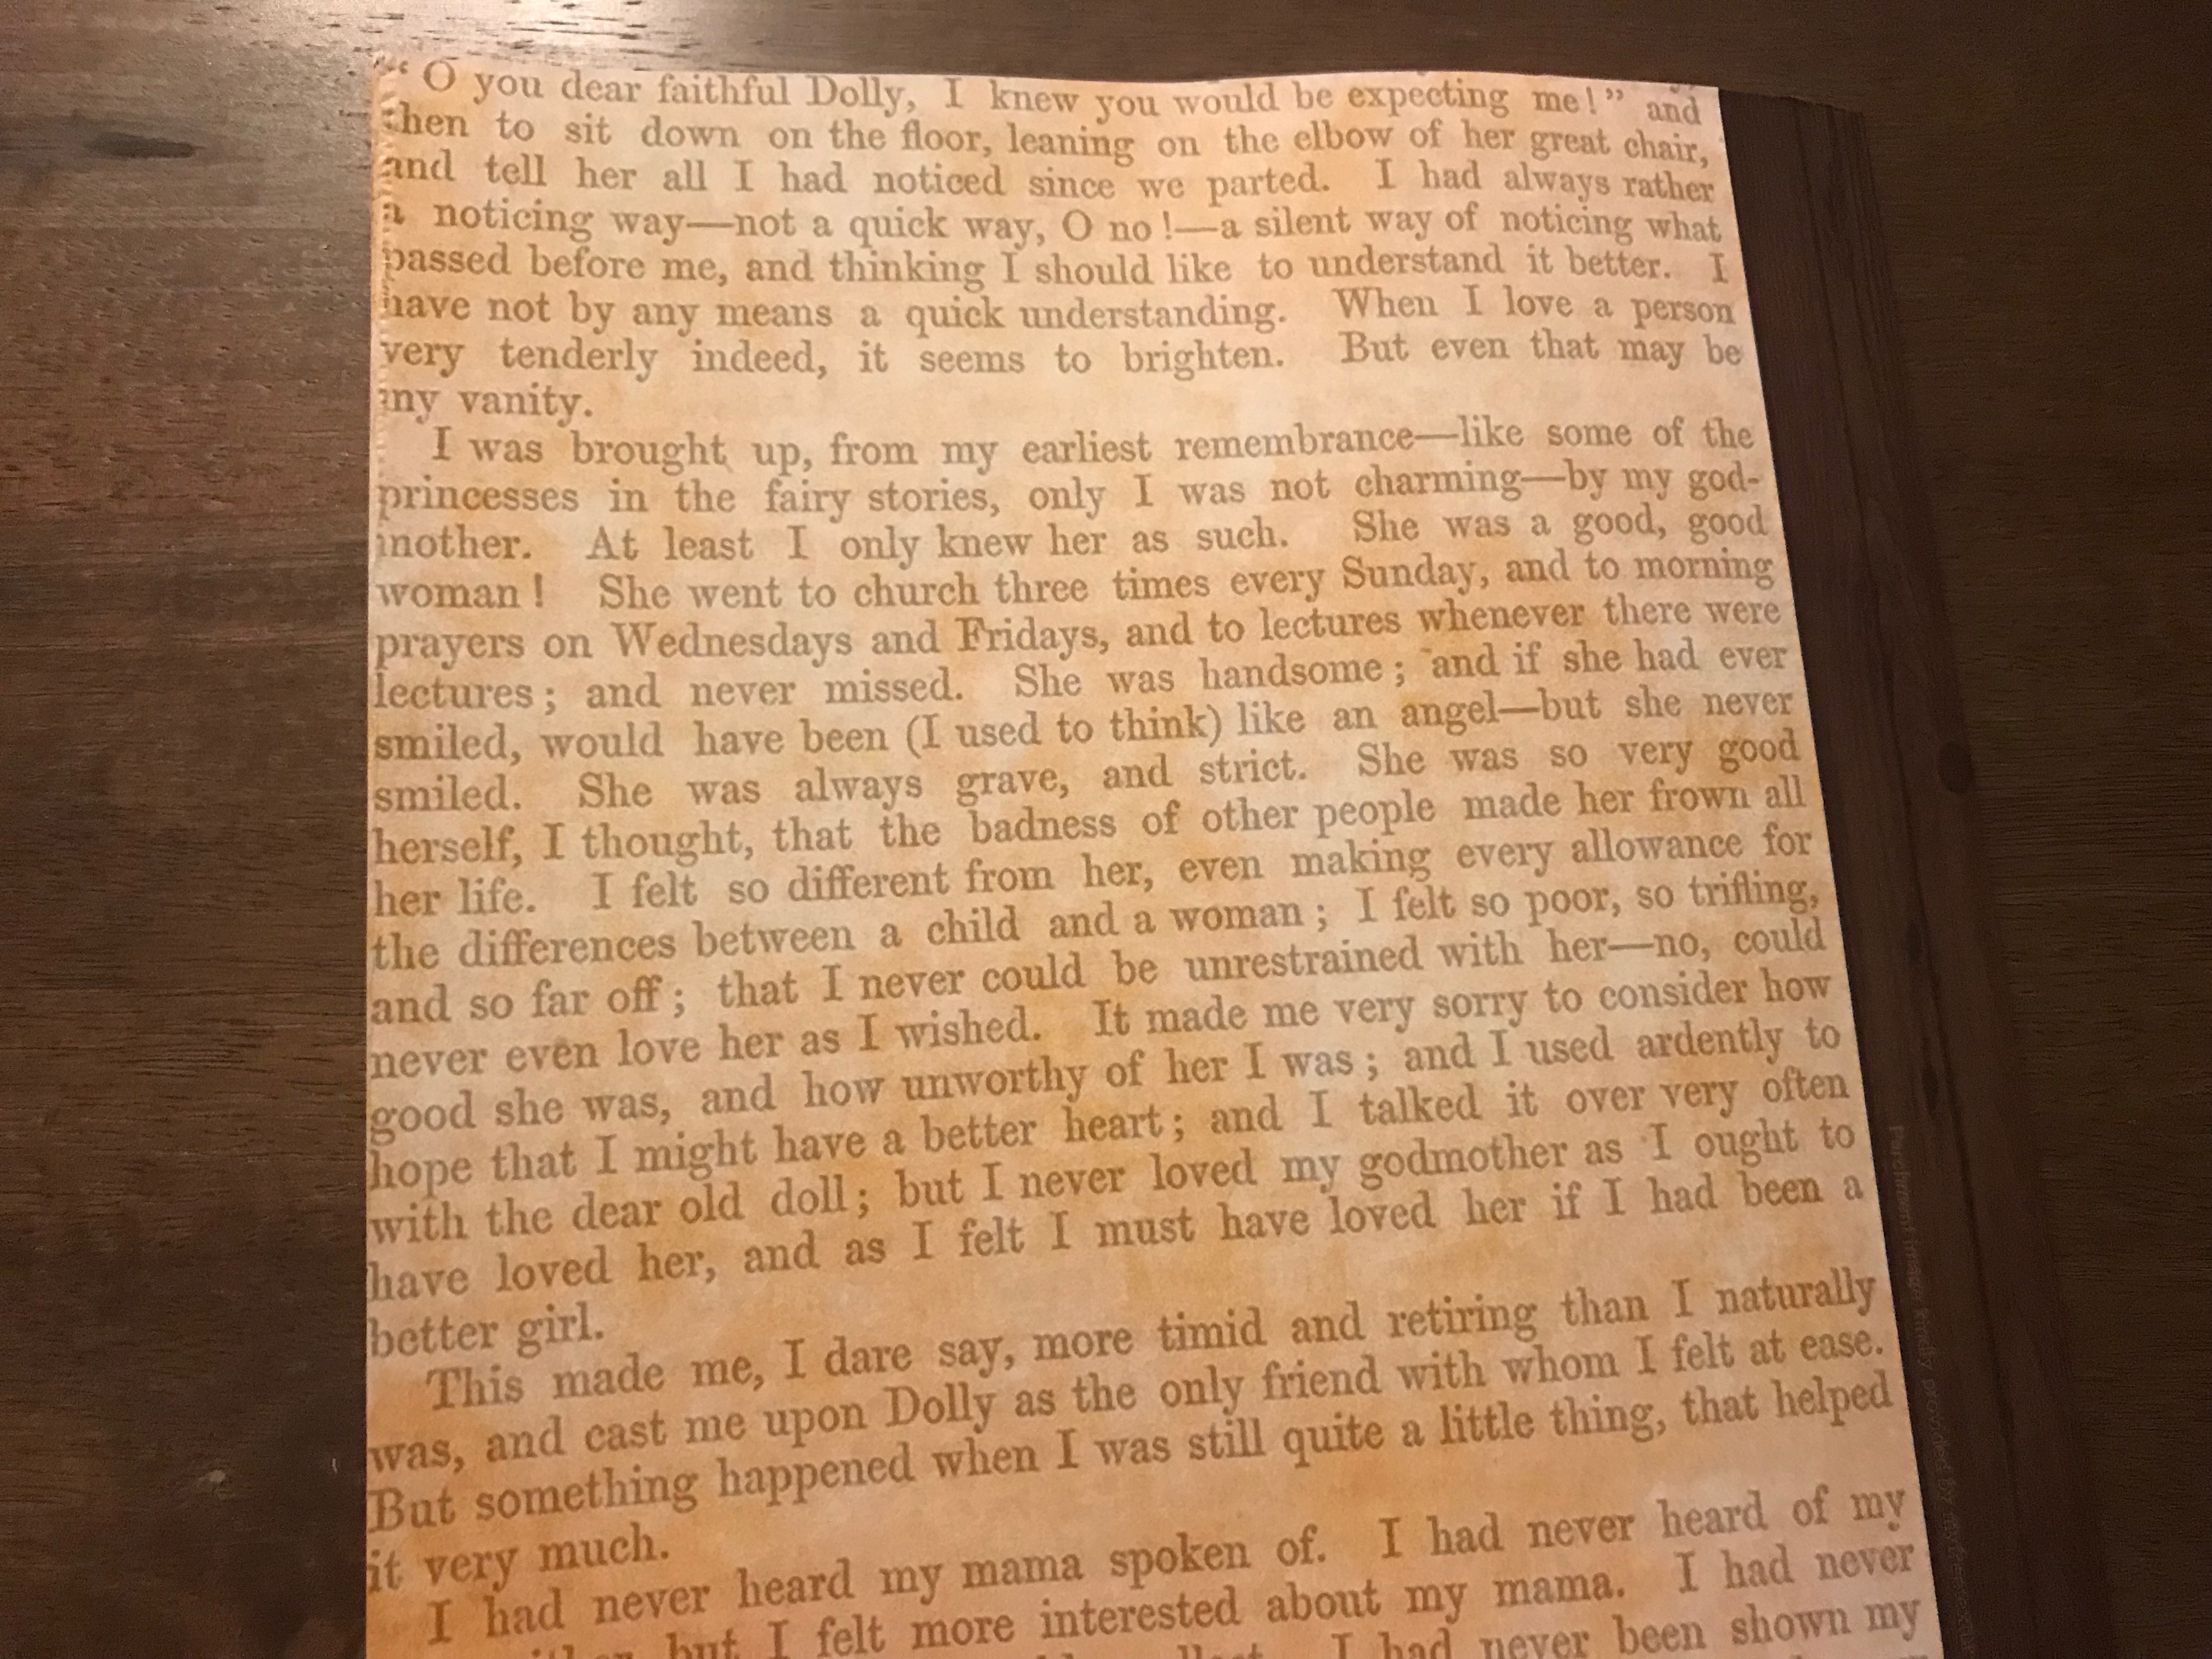 “ O you dear faithful Dolly, I knew you would be expecting me!” and
then to sit down on the floor, leaning on the elbow of her great chair,
and tell her all I had noticed since we parted. I had always rather
a noticing way—not a quick way, O no!—a silent way of noticing what
passed before me, and thinking I should like to understand it better. I
have not by any means a quick understanding. When I love a person
very tenderly indeed, it seems to brighten. But even that may be
my vanity.
I was brought up, from my earliest remembrance—like some of the
princesses in the fairy stories, only I was not charming—by my god-
mother. At least I only knew her as such. She was a good, good
woman! She went to church three times every Sunday, and to morning
prayers on Wednesdays and Fridays, and to lectures whenever there were
lectures; and never missed. She was handsome; and if she had ever
smiled, would have been (I used to think) like an angel—but she never
smiled. She was always grave, and strict. She was so very good
herself, I thought, that the badness of other people made her frown all
her life. I felt so different from her, even making every allowance for
the differences between a child and a woman; I felt so poor, so trifling,
and so far off; that I never could be unrestrained with her—no, could
never even love her as I wished. It made me very sorry to consider how
good she was, and how unworthy of her I was; and I used ardently to
hope that I might have a better heart; and I talked it over very often
with the dear old doll; but I never loved my godmother as I ought to
have loved her, and as I felt I must have loved her if I had been a
better girl.
This made me, I dare say, more timid and retiring than I naturally
was, and cast me upon Dolly as the only friend with whom I felt at ease.
But something happened when I was still quite a little thing, that helped
it very much.
I had never heard my mama spoken of. I had never heard of my
but I felt more interested about my mama. I had never
I had never been shown my
Parchment image kindly provided by